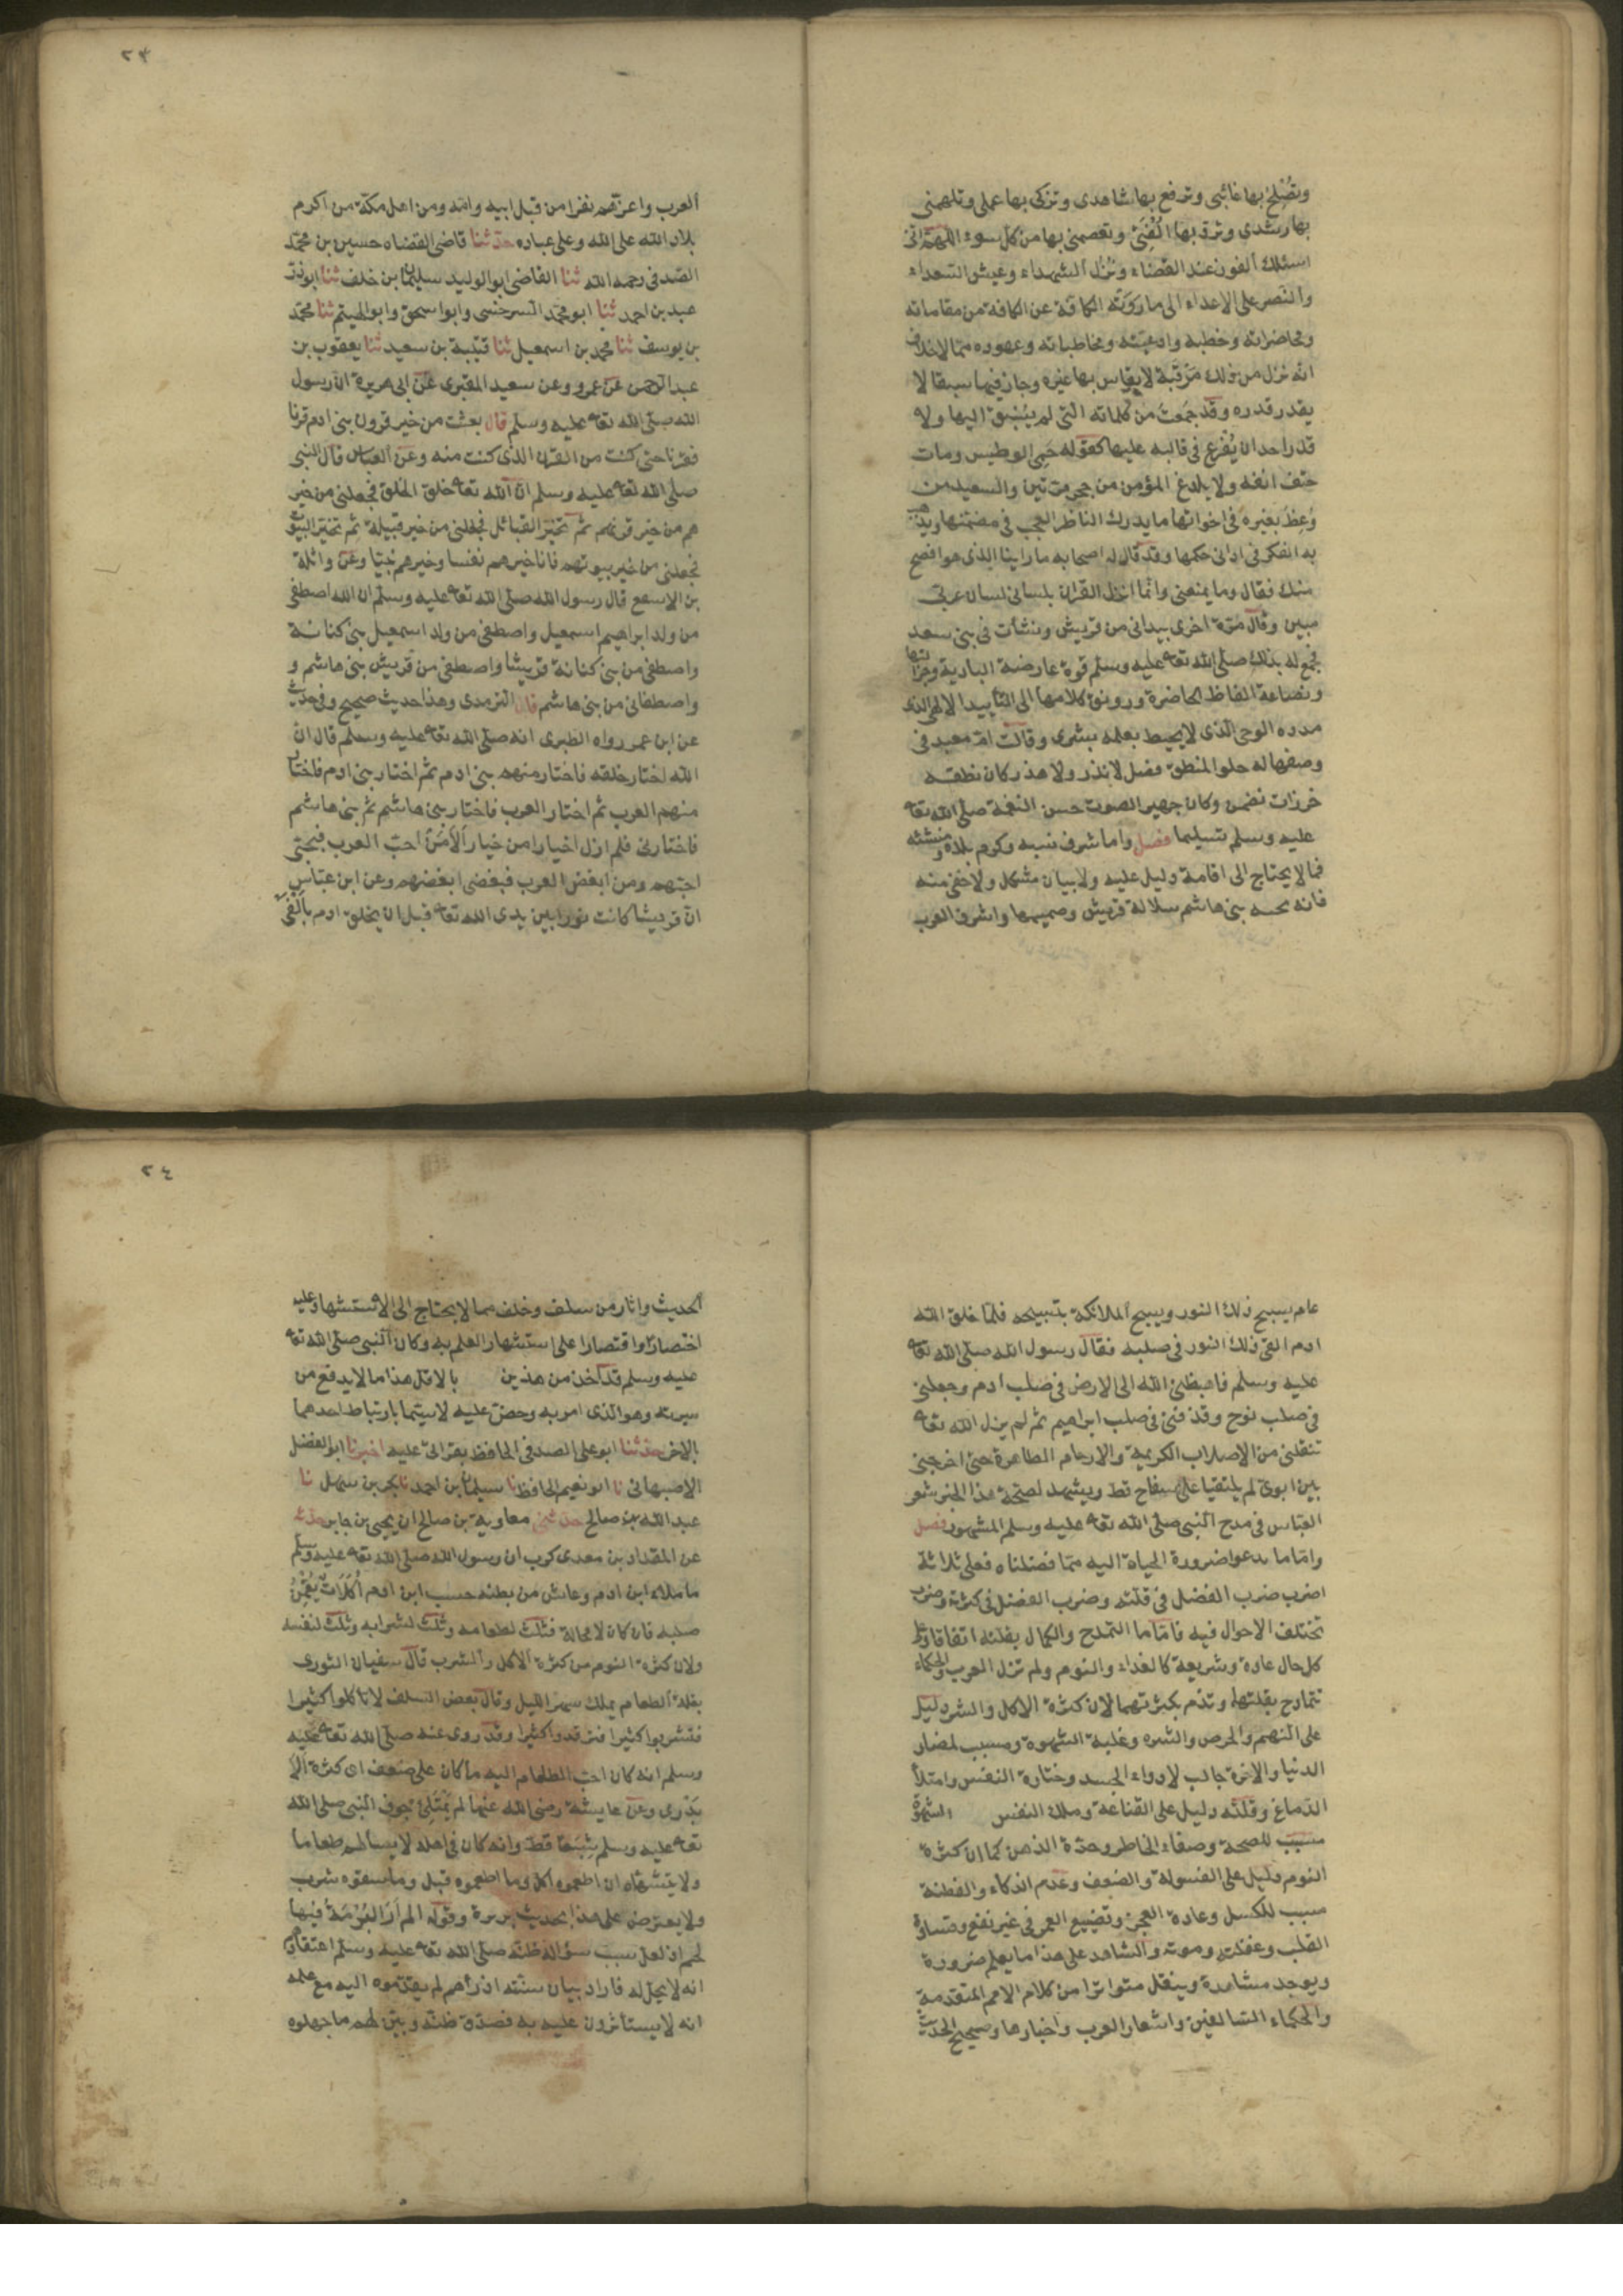 وتصلح بها غائبى وترفع بها شاهدى وتزكى بها عملى وتلهمنى
بها رشدى وترد بها الفتى وتعصمنى بها من كل سوء اللهم انى
اسئلك الفوز عند القضاء ونزل الشهداء وعيش السعداء
والنصر على الاعداء الى ما روته الكافة عن الكافة من مقاماته
ومحاضراته وخطبه وادعيته ومخاطباته وعهوده مما لا خلاف
انه نزل من ذلك مرقبة لا يقاس بها غيره وحاز فيها سبقا لا
يقدر قدره وقد جمعت من كلماته التى لم يسبق اليها ولا
قدر احد ان يفرغ فى قالبه عليها كقوله حمى الوطيس ومات
حتف انفه ولا يلدغ المؤمن من جحر مرتين والسعيد من
وعظ بغيره فى اخواتها ما يدرك الناظر العجب فى مضمنها ويذهب
به الفكر فى ادانى حكمها وقد قال له اصحابه ما راينا الذى هو افصح
منك فقال وما يمنعنى وانما انزل القران بلسانى لسان عربى
مبين وقال مرة اخرى بيدانى من قريش ونشأت فى بنى سعد
فجمع له بذلك صلى الله تعه عليه وسلم قوة عارضة البادية وجزالتها
ونصاعة الفاظ الحاضرة ورونق كلامها الى التأييد الالهى الذى
مدده الوحى الذى لا يحيط بعلمه بشرى وقالت ام معبد فى
وصفها له حلو المنطق فصل لا نذر ولا هذر كان نطقه
خرزات نضمن وكان جهير الصوت حسن النغمة صلى الله تعه
عليه وسلم تسليما فصل واما شرف نسبه وكرم بلده ومنشئه
فما لا يحتاج الى اقامة دليل عليه ولا بيان مشكل ولا خفى منه
فانه نخبه بنى هاشم سلالة قريش وصميمها واشرف العرب
٢٣
العرب واعزهم نفرا من قبل ابيه وامه ومن اهل مكة من اكرم
بلاد الله على الله وعلى عباده حدثنا قاضى القضاه حسين بن محمد
الصدفى رحمه الله ثنا القاضى ابو الوليد سليمان بن خلف ثنا ابوذر
عبد بن احمد ثنا ابو محمد السرخسى وابو اسحق وابو الهيثم ثنا محمد
بن يوسف ثنا محمد بن اسمعيل ثنا قتيبة بن سعيد ثنا يعقوب بن
عبد الرحمن عن عمرو وعن سعيد المقبرى عن ابى هريرة ان رسول
الله صلى الله تعه عليه وسلم قال بعثت من خير قرون بنى ادم قرنا
فقرنا حتى كنت من القرن الذى كنت منه وعن العباس قال النبى
صلى الله تعه عليه وسلم ان الله تعه خلق الخلق فجعلنى من خير
هم من خير قرنهم ثم تخير القبائل فجعلنى من خير قبيلة ثم تخير البيوت
فجعلنى من خير بيوتهم فانا خيرهم نفسا وخيرهم بيتا وعن واثلة
بن الاسقع قال رسول الله صلى الله تعه عليه وسلم ان الله اصطفى
من ولد ابراهيم اسمعيل واصطفى من ولد اسمعيل بنى كنانة
واصطفى من بنى كنانة قريشا واصطفى من قريش بنى هاشم و
واصطفانى من بنى هاشم قال الترمدى وهذا حديث صحيح وفى حديث
عن ابن عمر رواه الطبرى انه صلى الله تعه عليه وسلم قال ان
الله اختار خلقه فاختار منهم بنى ادم ثم اختار بنى ادم فاختار
منهم العرب ثم اختار العرب فاختار بنى هاشم ثم بنى هاشم
فاختارنى فلم ازل اخيارا من خيار الا من احب العرب فبحبى
احبهم ومن ابغض العرب فببغضى ابغضهم وعن ابن عباس
ان قريشا كانت نورا بين يدى الله تعه قبل ان يخلق ادم بالفى
عام يسبح ذلك النور ويسبح الملائكة بتسبيحه فلما خلق الله
ادم القى ذلك النور فى صلبه فقال رسول الله صلى الله تعه
عليه وسلم فاهبطنى الله الى الارض فى صلب ادم وجعلنى
فى صلب نوح وقذفنى فى صلب ابراهيم ثم لم يزل الله تعه
تنقلنى من الاصلاب الكريمة والارحام الطاهرة حتى اخرجنى
بين ابوى لم يلتقيا على سفاح قط ويشهد لصحة هذا الخبر شعر
العباس فى مدح النبى صلى الله تعه عليه وسلم المشهور فصل
واما ما يدعوا ضرورة الحياة اليه مما فصلناه فعلى ثلاثة
اضرب ضرب الفضل فى قلته وضرب الفضل فى كثرته وضرب
تختلف الاحوال فيه فاما ما التمدح والكمال بقلته اتفاقا وعلى
كل حال عادة وشريعة كالغداء والنوم ولم تزل العرب والحكماء
تتمادح بقلتها وتذم بكثرتهما لان كثرة الاكل والشرب دليل
على النهم والحرص والشره وغلبة الشهوة ومسبب لمضار
الدنيا والاخرة جالب لادواء الجسد وخثارة النفس وامتلأ
الدماغ وقلته دليل على القناعة وملك النفس الشهوة
مسبب للصحة وصفاء الخاطر وحدة الذهن كما ان كثرة
النوم دليل على الفسولة والضعف وعدم الذكاء والفطنة
مسبب للكسل وعادة العجز وتضييع العمر فى غير نفع وقساوة
القلب وغفلته وموته والشاهد على هذا ما يعلم ضرورة
ويوجد مشاهدة وينقل متواترا من كلام الامم المتقدمة
والحكماء السالفين واشعار العرب واخبارها وصحيح الحديث
٢٤
الحديث واثار من سلف وخلف مما لا يحتاج الى الاستشهاد عليه
اختصارا واقتصارا على اشتهار العلم به وكان النبى صلى الله تعه
عليه وسلم قد اخذ من هذين بالاقل هذا ما لا يدفع من
سيرته وهو الذى امر به وحض عليه لاسيما بارتباط احدهما
بالاخر حدثنا ابو على الصدفى الحافظ بقراتى عليه اخبرنا ابو الفضل
الاصبهانى نا ابو نعيم الحافظ نا سليمان بن احمد نا بكر بن سهل نا
عبد الله بن صالح حدثنى معاوية بن صالح ان يحيى بن جابر حدثه
عن المقداد بن معدى كرب ان رسول الله صلى الله تعه عليه وسلم
ما ملاء ابن ادم وعاش من بطنه حسب ابن ادم اكلات يقمن
صلبه فان كان لا محالة فثلث لطعامه وثلث لشرابه وثلث لنفسه
ولان كثرة النوم من كثرة الاكل والشرب قال سفيان الثورى
بقلة الطعام يملك سهر الليل وقال بعض السلف لا تاكلوا كثيرا
فتشربوا كثيرا فترقدوا كثيرا وقد روى عنه صلى الله تعه عليه
وسلم انه كان احب الطعام اليه ما كان على ضفف اى كثرة الا
يدرى وعن عايشة رضى الله عنها لم يمتلئ جوف النبى صلى الله
تعه عليه وسلم شبعا قط وانه كان فى اهله لا يسألهم طعاما
ولا يتشهاه ان اطعموه اكل وما اطعموه قبل وما سقوه شرب
ولا يعترض على هذا بحديث بريرة وقوله الم ار البرمة فيها
لحم اذ لعل سبب سؤاله ظنه صلى الله تعه عليه وسلم اعتقادهم
انه لا يحل له فاراد بيان سنته اذ رأهم لم يقدموه اليه مع علمه
انه لا يستأثرون عليه به فصدق ظنه وبين لهم ما جهلوه